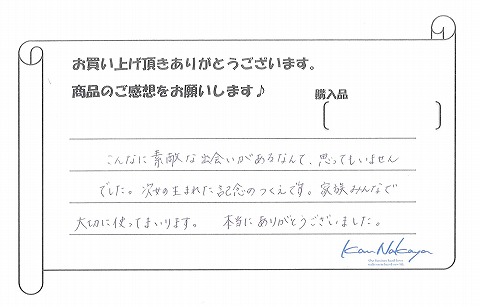 お買い上げ頂きありがとうございます。
商品のご感想をお願いします♪
購入品
こんなに素敵な出会いがあるなんて、思ってもいません
でした。次女の生まれた記念のつくえです。家族みんなで
大切に使ってまいります。 本当にありがとうございました。